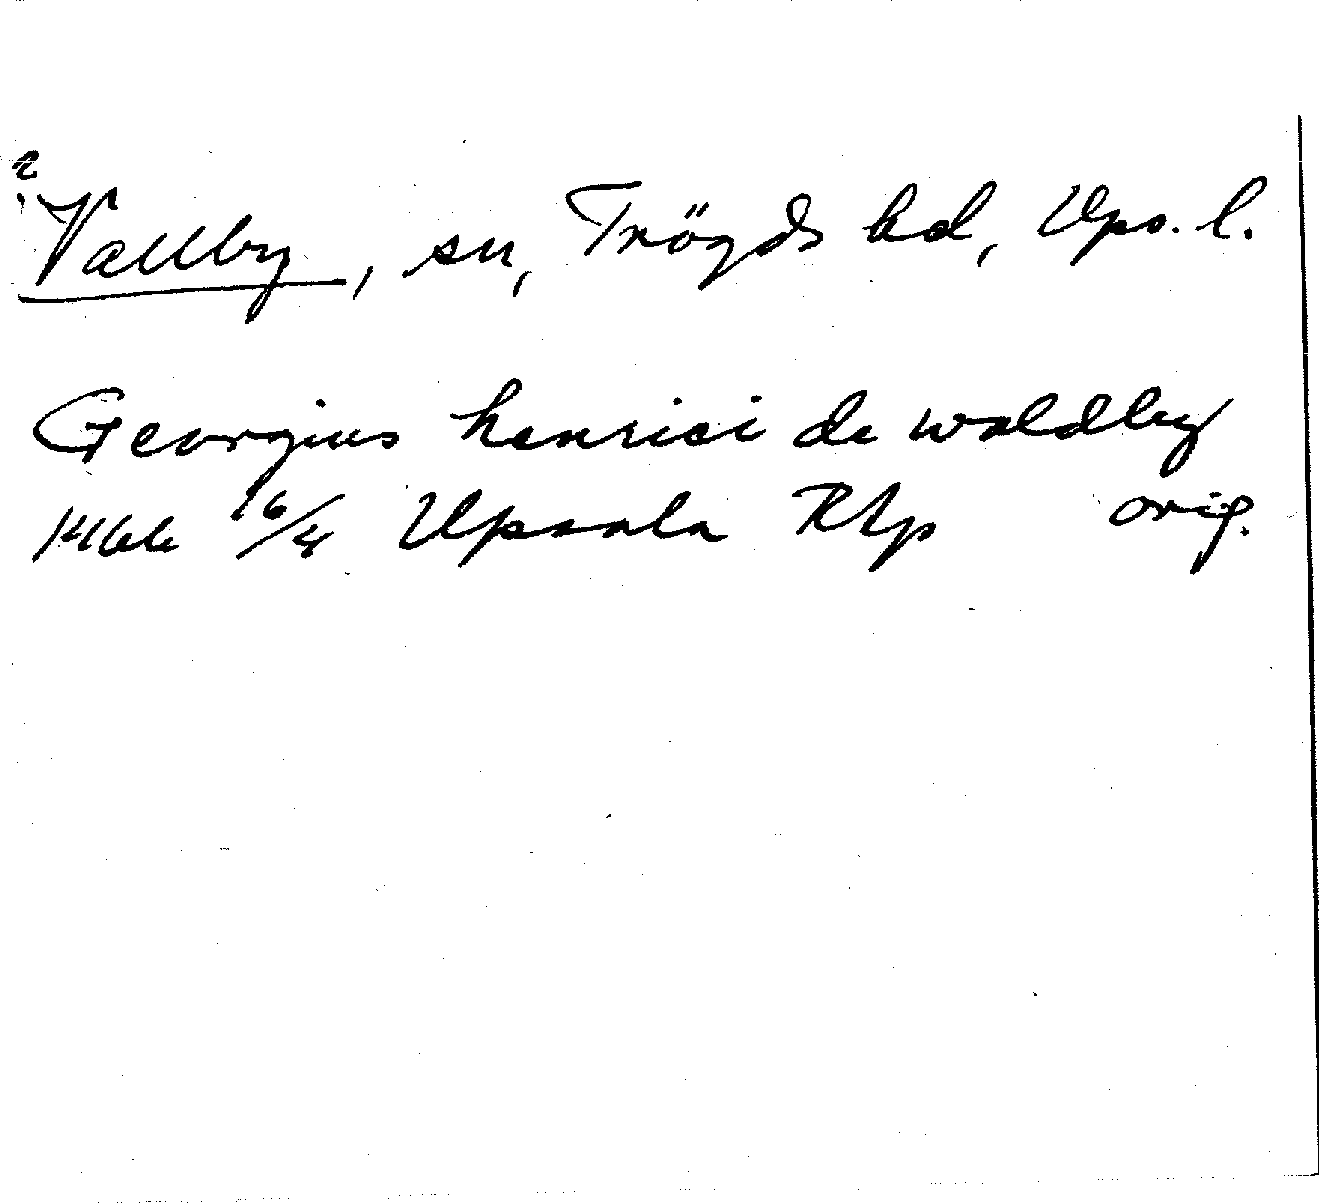 ?
Vallby, sn, Trögds hd, Ups. l.
Georgius henrici de waldby
1466 16/4 Upsala RAp orig.